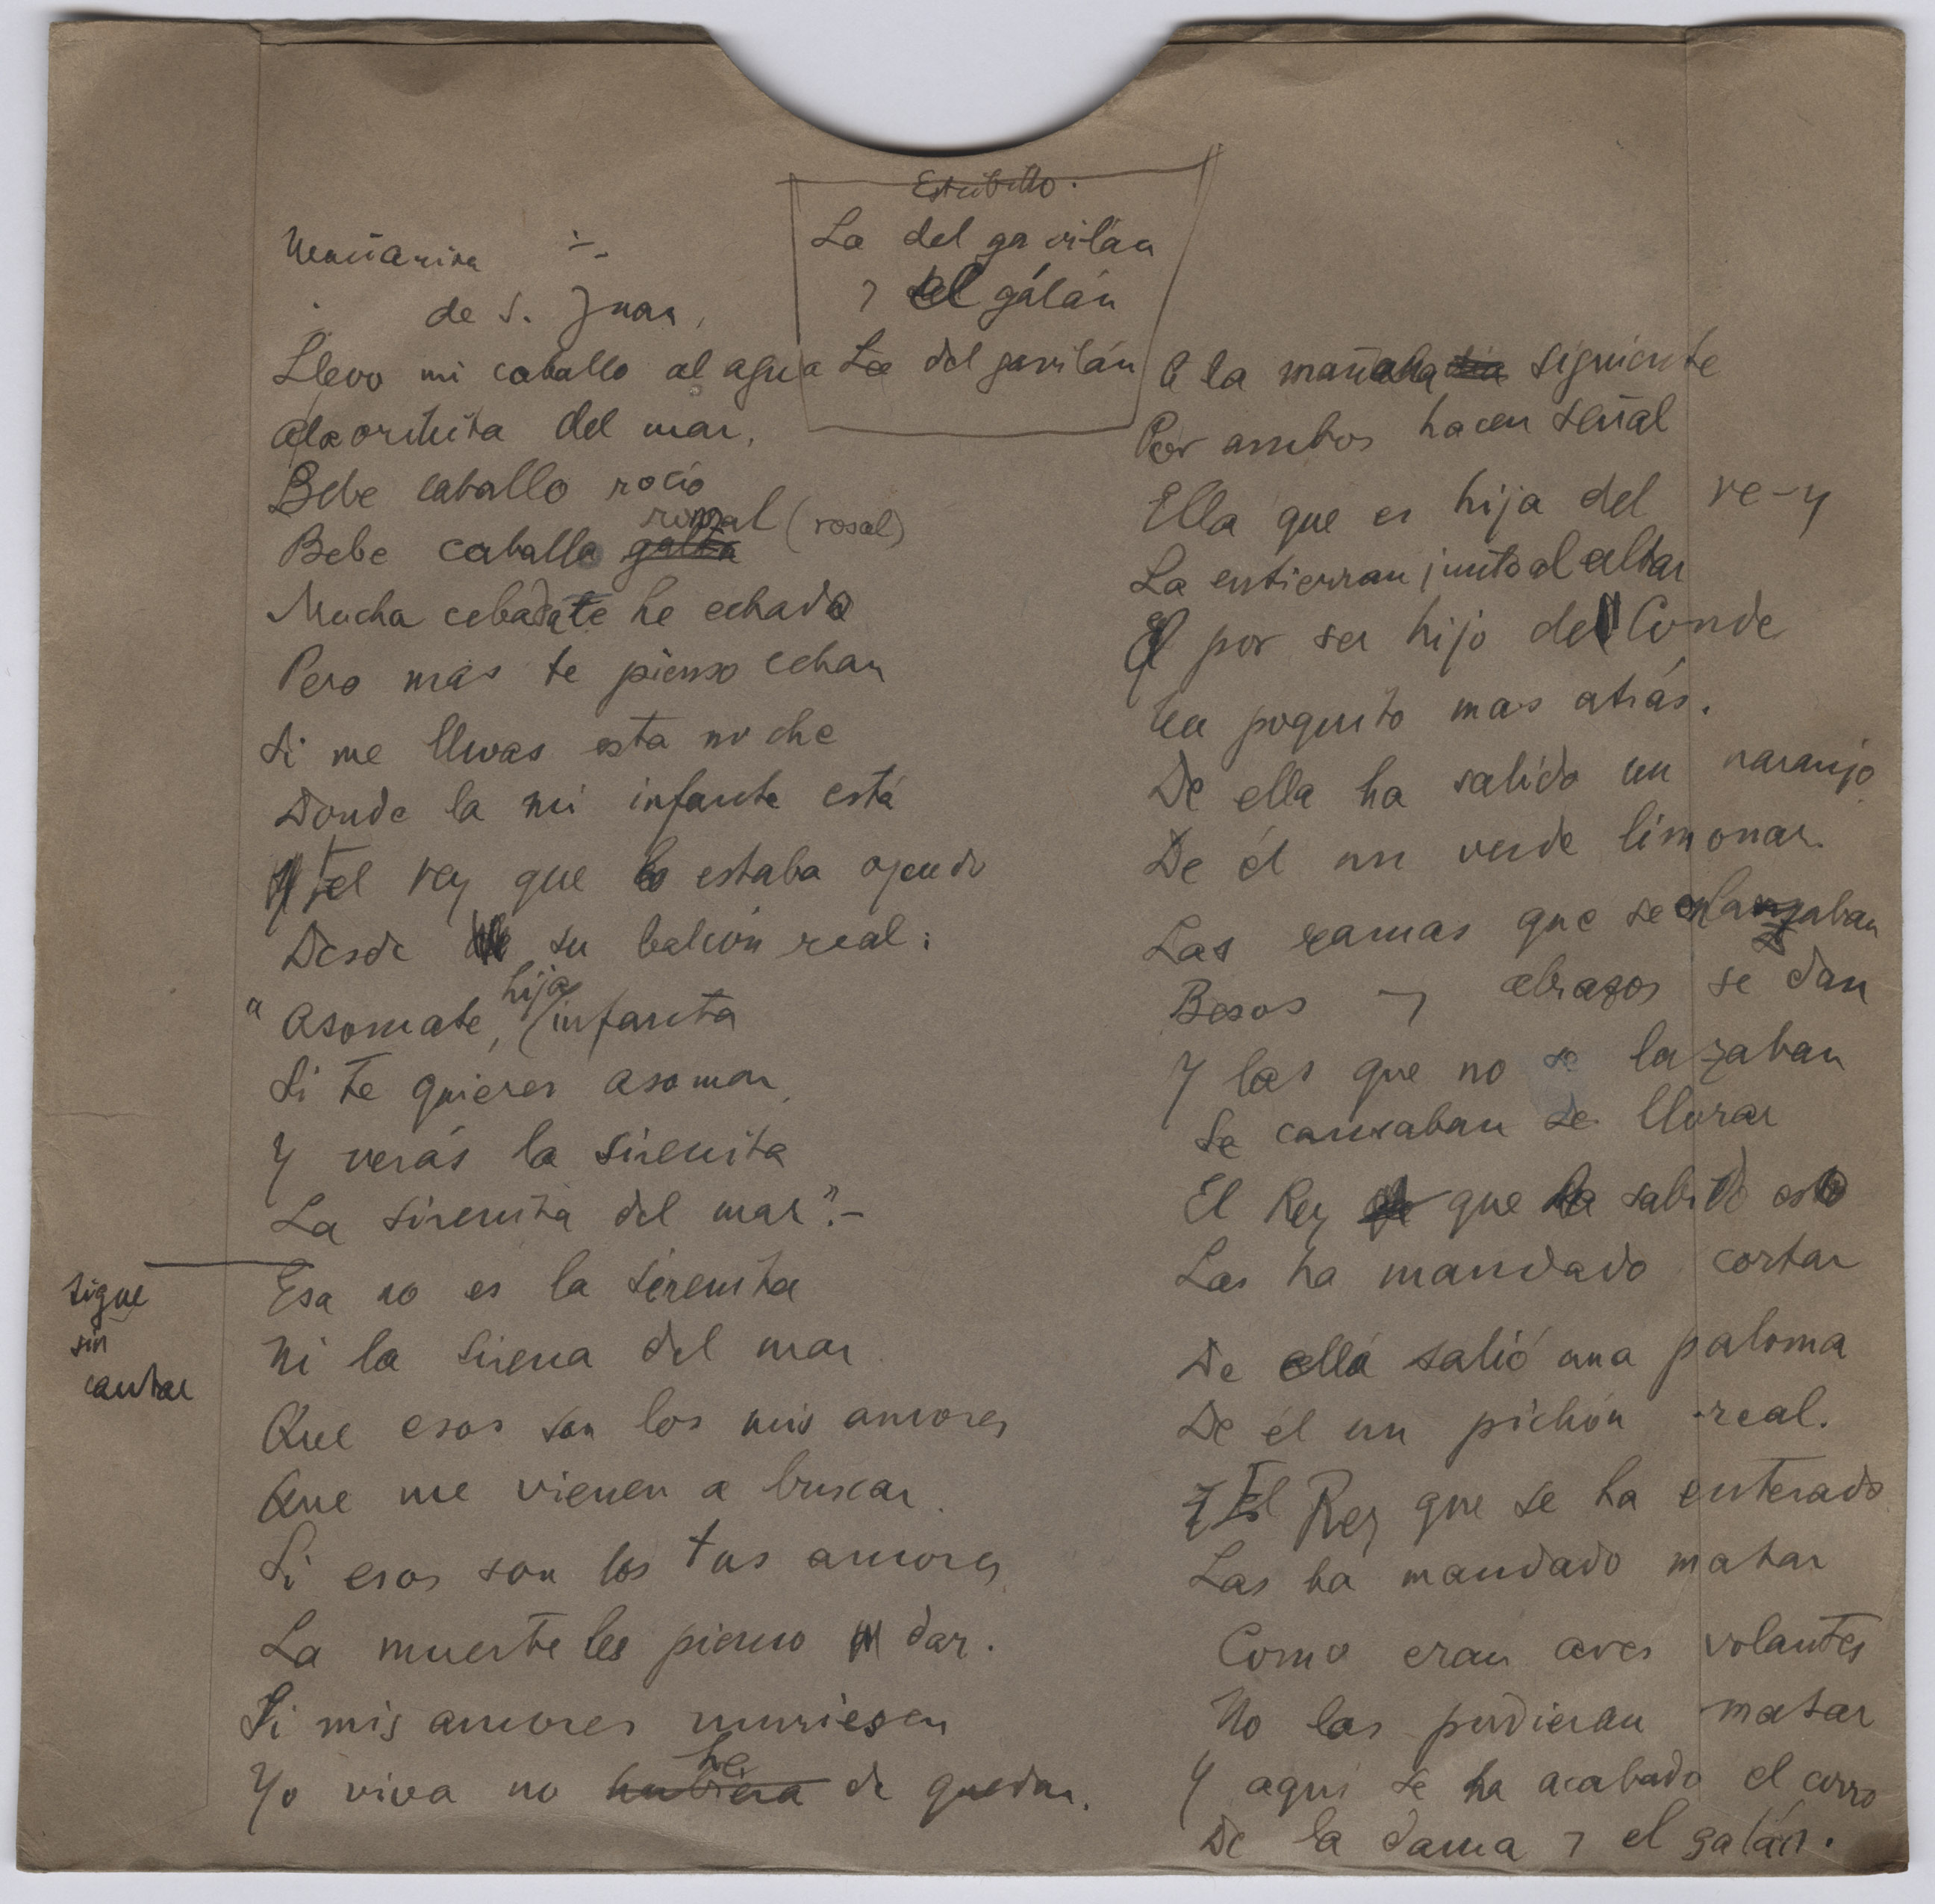 Estribillo.
La del gavilán
y el galán
La del gavilán
Mañanina
de S. Juan,
Llevo mi caballo al agua
A la orillita del mar.
Bebe caballo rocío
Bebe caballo (rosal)
Mucha cebada te he echado
Pero mas te pienso echar
Si me llevas esta noche
Donde la mi infanta está
Y el rey que lo estaba oyendo
Desde su balcón real:
"Asomate, hija infanta
Si te quieres asomar,
Y verás la sirenita
La sirenita del mar".-
sigue
sin
cantar
Esa no es la sirenita
Ni la sirena del mar
Que esos son los mis amores
Que me vienen a buscar.
Si esos son los tus amores
La muerte les pienso dar.
Si mis amores muriesen
Yo viva no he de quedar.
A la mañana siguiente
Por ambos hacen señal
Ella que es hija del re-y
La entierran junto al altar
El por ser hijo del Conde
Un poquito mas atrás.
De ella ha salido un naranjo
De él un verde limonar.
Las ramas que se enlazaban
Besos y abrazos se dan
Y las que no se lazaban
Se cansaban de llorar
El Rey que ha sabido esto
Las ha mandado cortar
De ella salió una paloma
De él un pichón real.
Y El Rey que se ha enterado
Las ha mandado matar
Como eran aves volantes
No las pudieran matar
Y aquí se ha acabado el corro
De la dama y el galán.